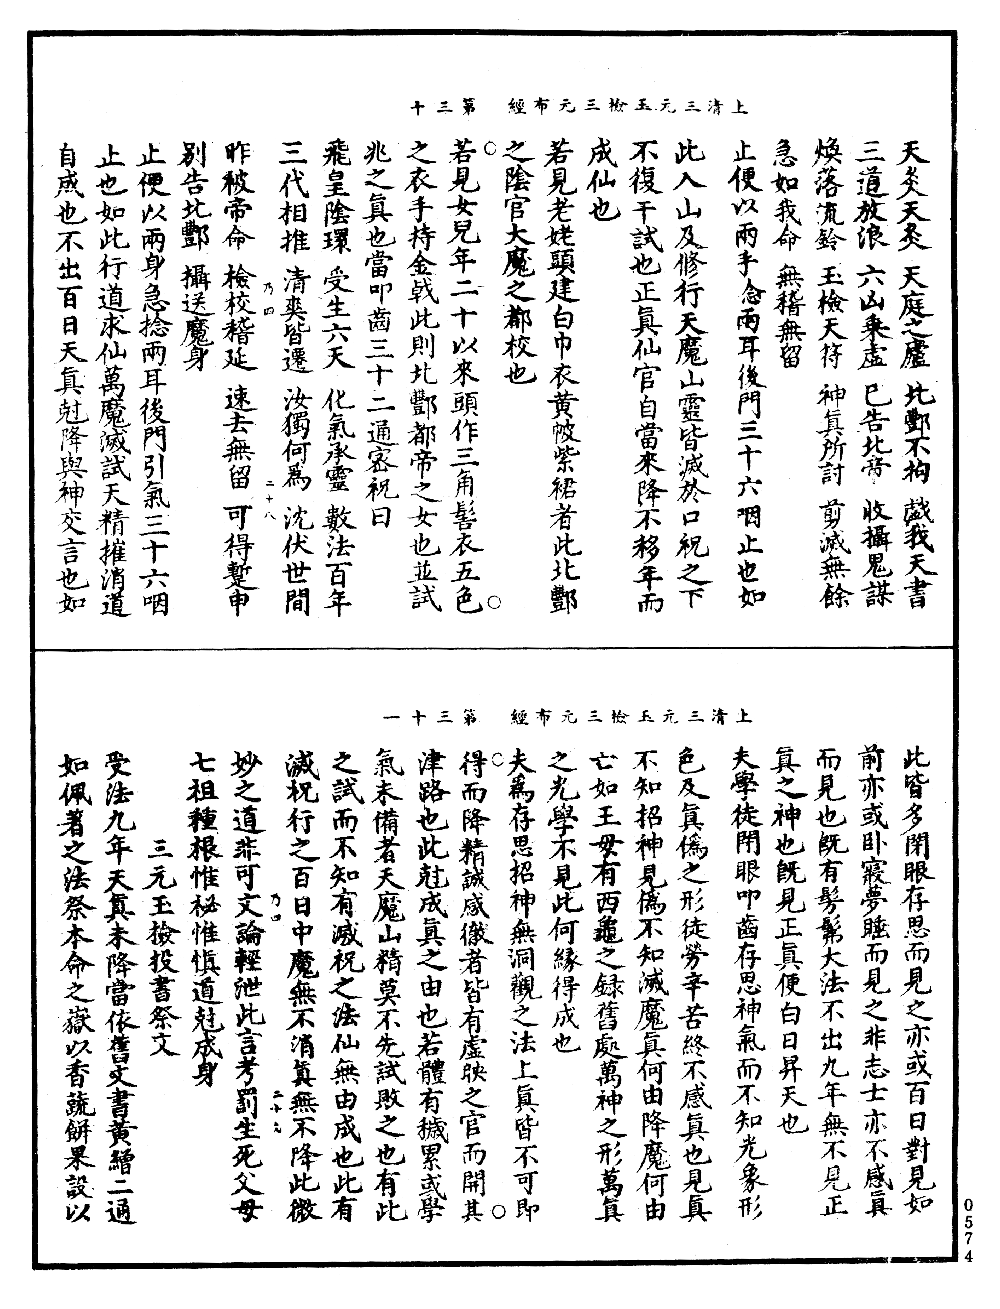 上清三元玉檢三元布經　第三十
天炎天炎　天庭之廬　北酆不拘　戲我天書
三道放浪　六山乘虛　已告北帝　收攝鬼謀
煥落流鈴　玉檢天符　神真所討　剪滅無餘
急如我命　無稽無留
止便以兩手念兩耳後門三十六咽止也如
此入山及修行天魔山靈皆滅於口祝之下
不復干試也正真仙官自當來降不移年而
成仙也
若見老姥頭建白巾衣黃帔紫裙者此北酆
之陰官大魔之都校也
若見女兒年二十以來頭作三角髻衣五色
之衣手持金戟此則北酆都帝之女也並試
兆之真也當叩齒三十二通密祝曰
飛皇陰環　受生六天　化氣承靈　數法百年
三代相推　清爽皆遷　汝獨何為　沈伏世間
乃四　二十八
昨被帝命　檢校稽延　速去無留　可得蹔申
別告北酆　攝送魔身
止便以兩身急捻兩耳後門引氣三十六咽
止也如此行道求仙萬魔滅試天精摧消道
自感也不出百日天真尅降與神交言也如
上清三元玉檢三元布經　第三十一
此皆多閉眼存思而見之亦或百日對見如
前亦或卧寢夢睡而見之非志士亦不感真
而見也旣有髣髴大法不出九年無不見正
真之神也旣見正真便白日昇天也
夫學徒閉眼叩齒存思神氣而不知光象形
色及真偽之形徒勞辛苦終不感真也見真
不知招神見偽不知滅魔真何由降魔何由
亡如王母有西龜之録舊處萬神之形萬真
之光學不見此何緣得成也
夫為存思招神無洞觀之法上真皆不可即
得而降精誠感徹者皆有虛映之官而開其
津路也此尅成真之由也若體有穢累或學
氣未備者天魔山精莫不先試敗之也有此
之試而不知有滅祝之法仙無由成也此有
滅祝行之百日中魔無不消真無不降此微
乃四　二十九
妙之道非可文論輕泄此言考罰生死父母
七祖種根惟祕惟慎道尅成身
三元玉檢投書祭文
受法九年天真未降當依舊文書黃繒二通
如佩著之法祭本命之嶽以香蔬餅果設以
0574